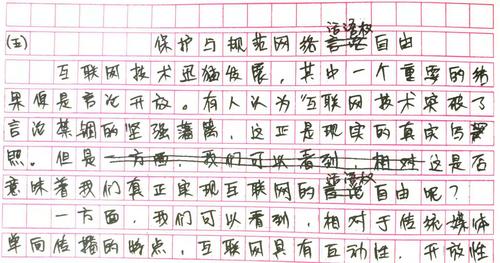 (五) 保护与规范网络话语权自由
互联网技术迅猛发展，其中一个重要的结
果便是言论开放。有人认为"互联网技术突破了
言论禁锢的坚强藩篱，这正是现实的真实写
照。但是一方面，我们可以看到，相对这是否
意味着我们真正实现互联网的话语权自由呢？
一方面，我们可以看到，相对于传统媒体
单向传播的特点，互联网具有互动性、开放性